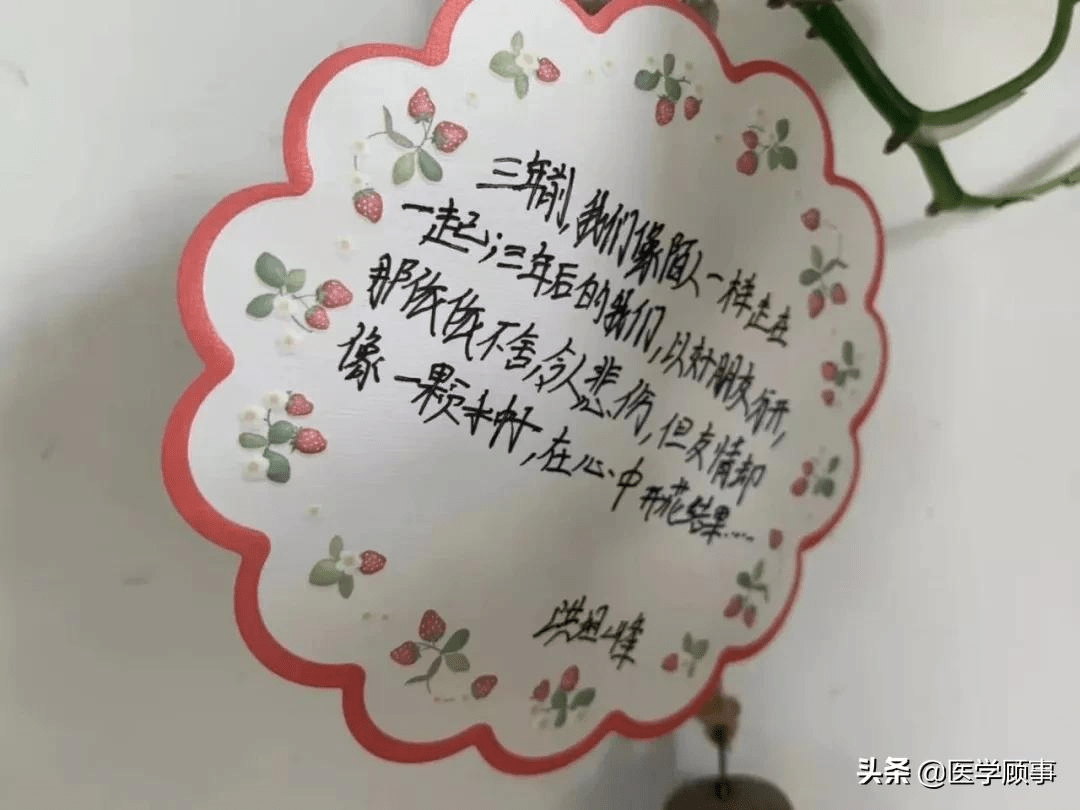 三年前，我们像陌人一样走在
一起；三年后的我们，以好朋友分开，
那依依不舍，令人悲伤，但友情却
像一颗种子，在心中开花结果……
头条 @医学顾事